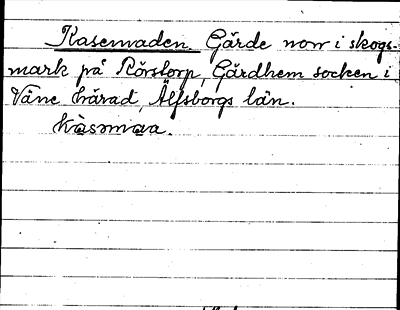 Kasemaden. Gärde norr i skogs-
mark på Rörstorp, Gärdhem socken i
Väne härad, Älfsborgs län.